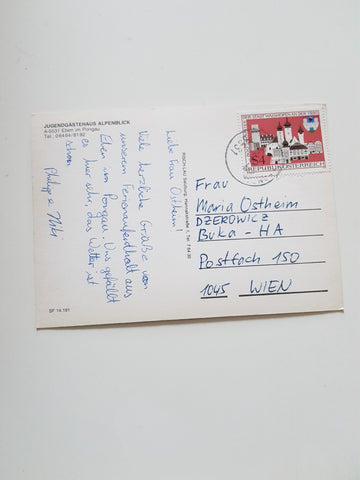 JUGENDGÄSTEHAUS ALPENBLICK
A-5531 Eben im Pongau
Tel.: 06464/8192
Liebe Frau Ostheim!
Viele herzliche Grüße von
unserem Ferienaufenthalt aus
Eben im Pongau. Uns gefällt
es hier sehr, das Wetter ist
schön.
Philipp u.
SF 14.191
S4
REPUBLIK ÖSTERREICH
Frau
Maria Ostheim
DZEROWICZ
Buka - HA
Postfach 150
1045 WIEN